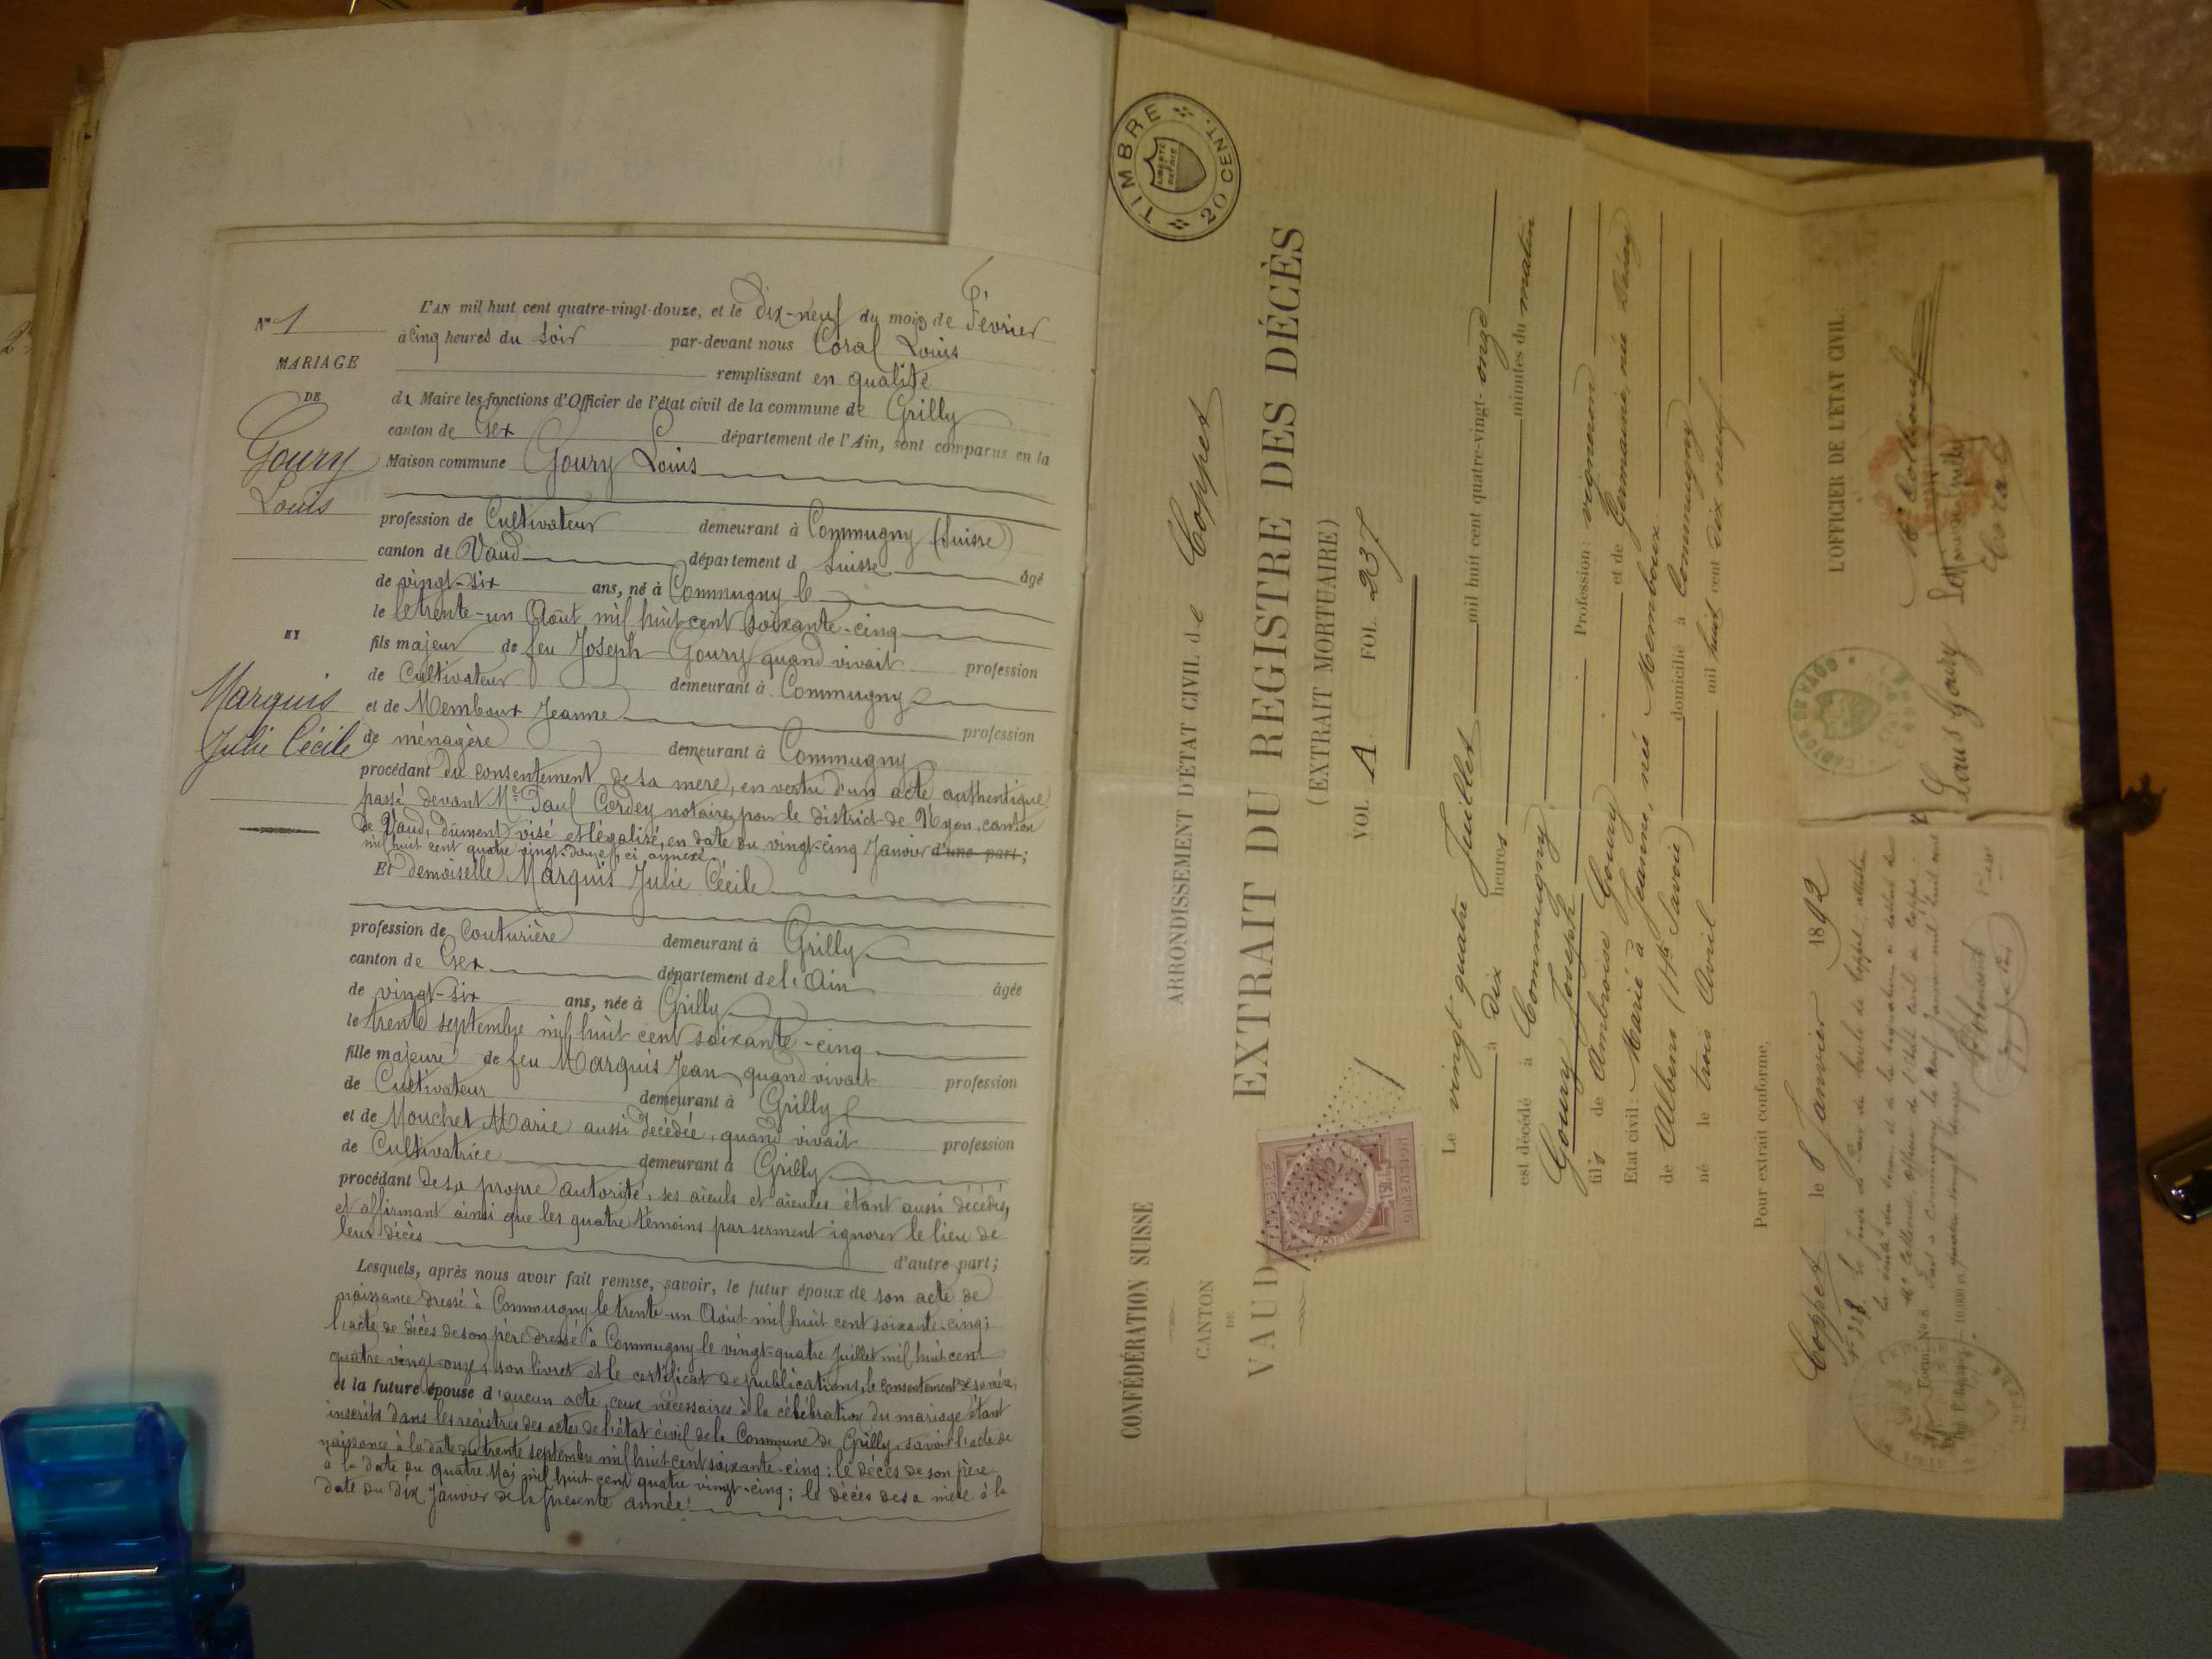 N° 1
MARIAGE
DE
Goury
Louis
ET
Marquis
Julie Cécile
L'AN mil huit cent quatre-vingt-douze, et le dix-neuf du mois de Février
à cinq heures du soir par-devant nous Coral Louis
remplissant en qualité
de Maire les fonctions d'Officier de l'état civil de la commune de Grilly
canton de Gex département de l'Ain, sont comparus en la
Maison commune Goury Louis
profession de Cultivateur demeurant à Commugny (Suisse)
canton de Vaud département d Suisse âgé
de vingt-six ans, né à Commugny le
le le trente-un Août mil huit cent soixante-cinq
fils majeur de feu Joseph Goury quand vivait profession
de Cultivateur demeurant à Commugny
et de Memboux Jeanne profession
de ménagère demeurant à Commugny
procédant du consentement de sa mère, en vertu d'un acte authentique
passé devant Me Paul Cordey notaire, pour le district de Nyon, canton
de Vaud, dûment visé et légalisé, en date du vingt-cinq Janvier d'une part;
mil huit cent quatre vingt-douze, ci annexé.
Et demoiselle Marquis Julie Cécile
profession de Couturière demeurant à Grilly
canton de Gex département de l'Ain âgée
de vingt-six ans, née à Grilly
le trente septembre mil huit cent soixante-cinq
fille majeure de feu Marquis Jean quand vivait profession
de Cultivateur demeurant à Grilly
et de Mouchet Marie aussi décédée, quand vivait profession
de Cultivatrice demeurant à Grilly
procédant de sa propre autorité, ses aïeuls et aïeules étant aussi décédés,
et affirmant ainsi que les quatre témoins par serment ignorer le lieu de
leur décès d'autre part;
Lesquels, après nous avoir fait remise, savoir, le futur époux de son acte de
naissance dressé à Commugny le trente-un Août mil huit cent soixante-cinq;
l'acte de décès de son père dressé à Commugny le vingt-quatre Juillet mil huit cent
quatre vingt-onze, son livret et le certificat de publications, le consentement de sa mère,
et la future épouse d'aucun acte, ceux nécessaires à la célébration du mariage étant
inscrits dans les registres des actes de l'état civil de la Commune de Grilly, savoir l'acte de
naissance à la date du trente septembre mil huit cent soixante-cinq; le décès de son père
à la date du quatre Mai mil huit cent quatre vingt-cinq; le décès de sa mère à la
date du dix Janvier de la présente année.
TIMBRE
20 CENT.
LIBERTÉ
ET
PATRIE
CONFÉDÉRATION SUISSE
CANTON
DE
VAUD
ARRONDISSEMENT D'ÉTAT CIVIL de Coppet
EXTRAIT DU REGISTRE DES DÉCÈS
(EXTRAIT MORTUAIRE)
VOL. A. FOL. 237
Le vingt quatre Juillet mil huit cent quatre-vingt-onze
à dix heures minutes du matin
est décédé à Commugny
Goury Joseph Profession: vigneron
fils de Ambroise Goury et de Germaine, née
Etat civil: Marié à Jeanne, née Memboux
de Albens (Hte Savoie) domicilié à Commugny
né le trois Avril mil huit cent dix neuf.
Pour extrait conforme,
Coppet le 8 Janvier 1892
L'OFFICIER DE L'ÉTAT CIVIL:
CANTON DE VAUD
Louis Goury
Coral
N° 328